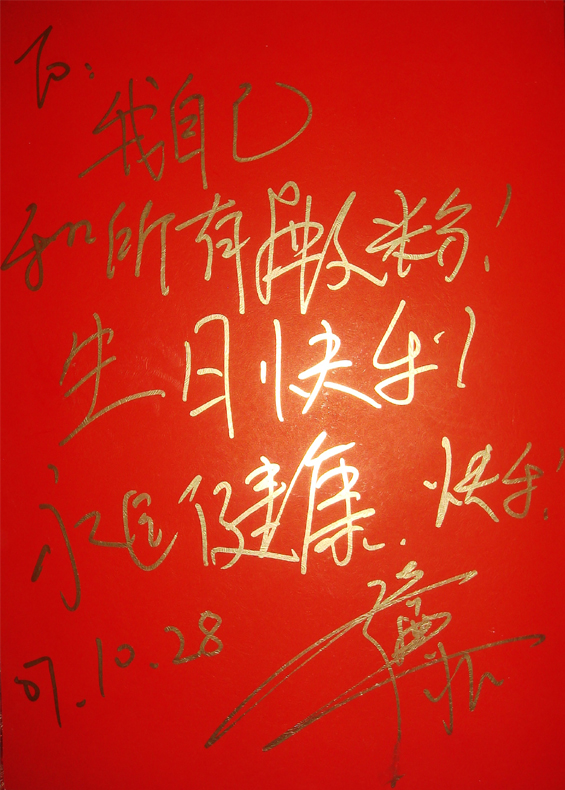 To:
我自己
和所有殿粉!
生日快乐!
永远健康. 快乐!
07.10.28